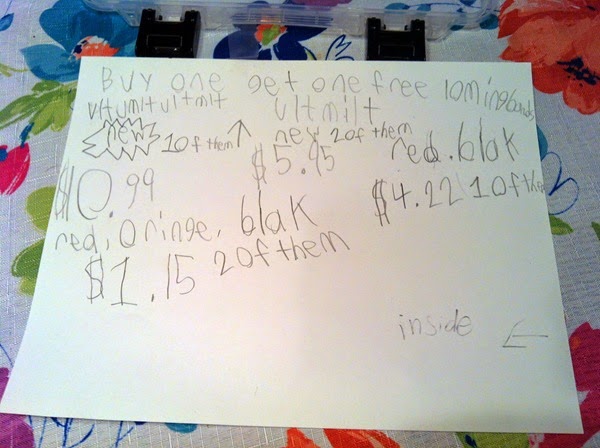 Buy one get one free lomingbands
vltumltultmlt vltmilt
new 1 0f them ↑ new 2 0f them
$0.99 $5.95 red.blak
$4.22 1 0f them
red, Oringe, blak
$1.15 2 0f them
inside ←